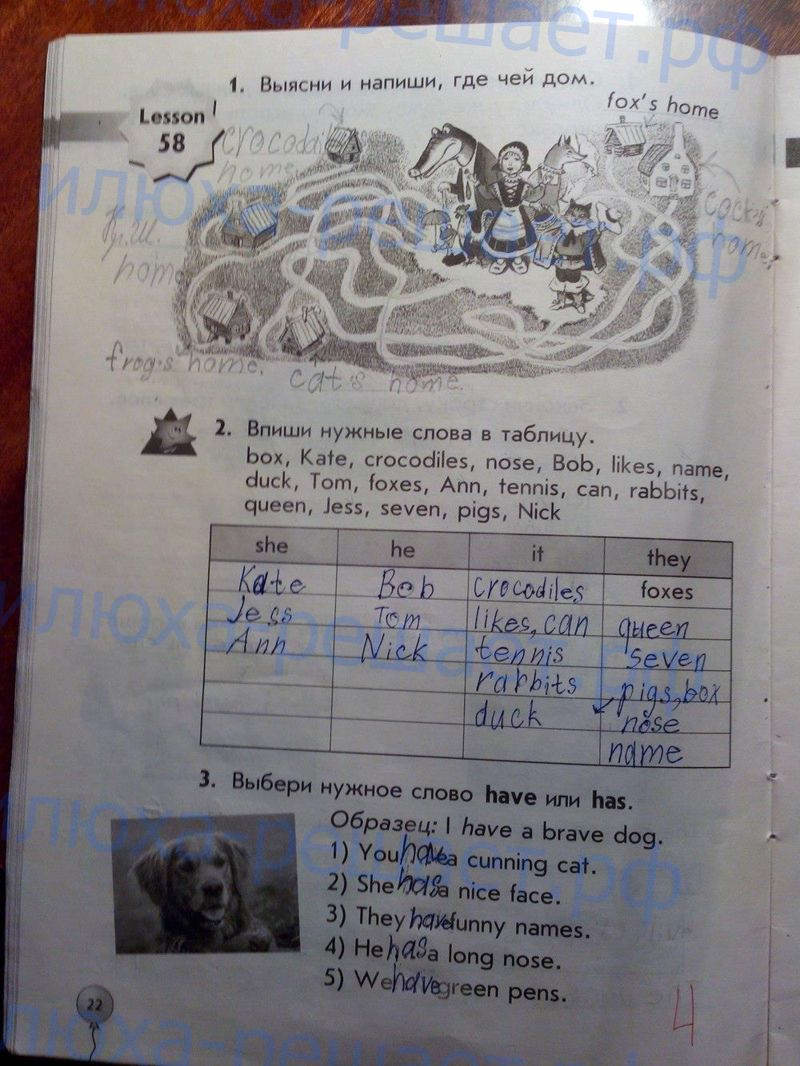 1. Выясни и напиши, где чей дом.
Lesson
58
fox's home
crocodile's
home
cock's
home
Кр.Ш.
home
frog's home.
cat's home.
2. Впиши нужные слова в таблицу.
box, Kate, crocodiles, nose, Bob, likes, name,
duck, Tom, foxes, Ann, tennis, can, rabbits,
queen, Jess, seven, pigs, Nick
she he it they
Kate Bob crocodiles foxes
Jess Tom likes, can queen
Ann Nick tennis seven
rabbits pigs, box
duck nose
name
3. Выбери нужное слово have или has.
Образец: I have a brave dog.
1) You have a cunning cat.
2) She has a nice face.
3) They have funny names.
4) He has a long nose.
5) We have green pens.
22
4
илюха-решает.рф
илюха-решает.рф
илюха-решает.рф
илюха-решает.рф
илюха-решает.рф